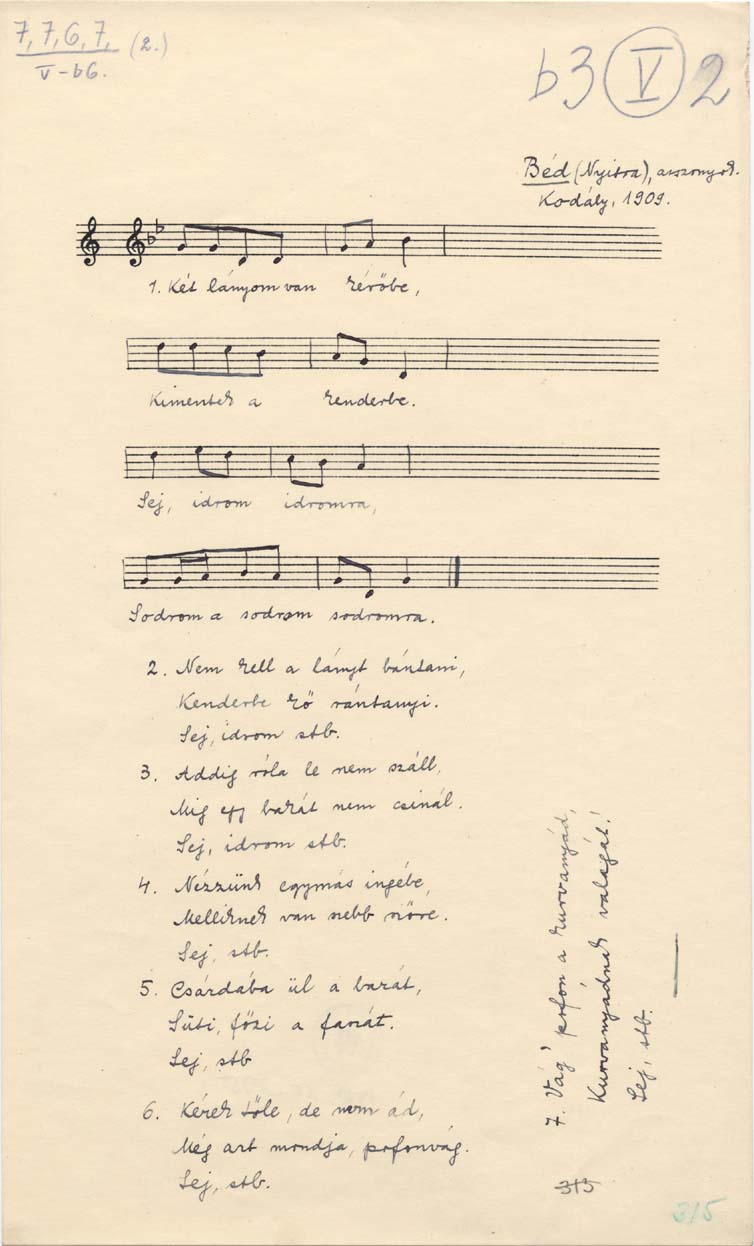 7, 7, 6, 7, (2.)
V-b6.
b3 V 2
Béd (Nyitra), asszonyok.
Kodály, 1909.
1. Két lányom van kérőbe,
Kimentek a kenderbe.
Sej, idrom idromra,
Sodrom a sodrom sodromra.
2. Nem kell a lányt bántani,
Kenderbe kő rántanyi.
Sej, idrom stb.
3. Addig róla le nem száll,
Mig egy barát nem csinál.
Sej, idrom stb.
4. Nézzünk egymás ingébe,
Melliknek van szebb szőre.
Sej, stb.
5. Csárdába ül a barát,
Süti, főzi a faszát.
Sej, stb
6. Kérek tőle, de nem ád,
Még azt mondja, pofonvág.
Sej, stb.
7. Vág' pofon a kurvanyád,
Kurvanyádnak valagát!
Sej, stb.
315
315